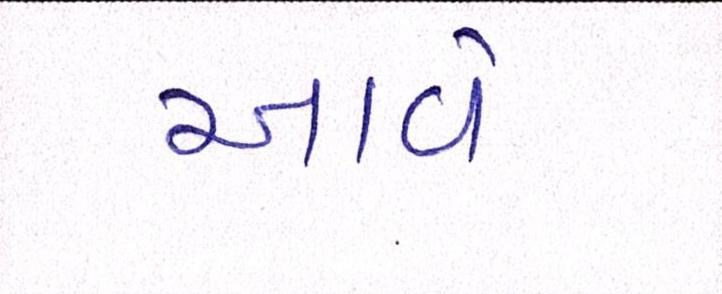 આવે